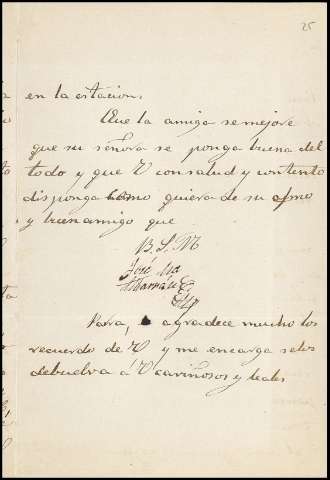 25
en la estacion.
Que la amiga se mejore
que su señora se ponga buena del
todo y que V con salud y contento
disponga como quiera de su afmo
y buen amigo que
B. S. M
José Ma
Para, agradece mucho los
recuerdo de V y me encarga selos
debuelva á V cariñosos y leales